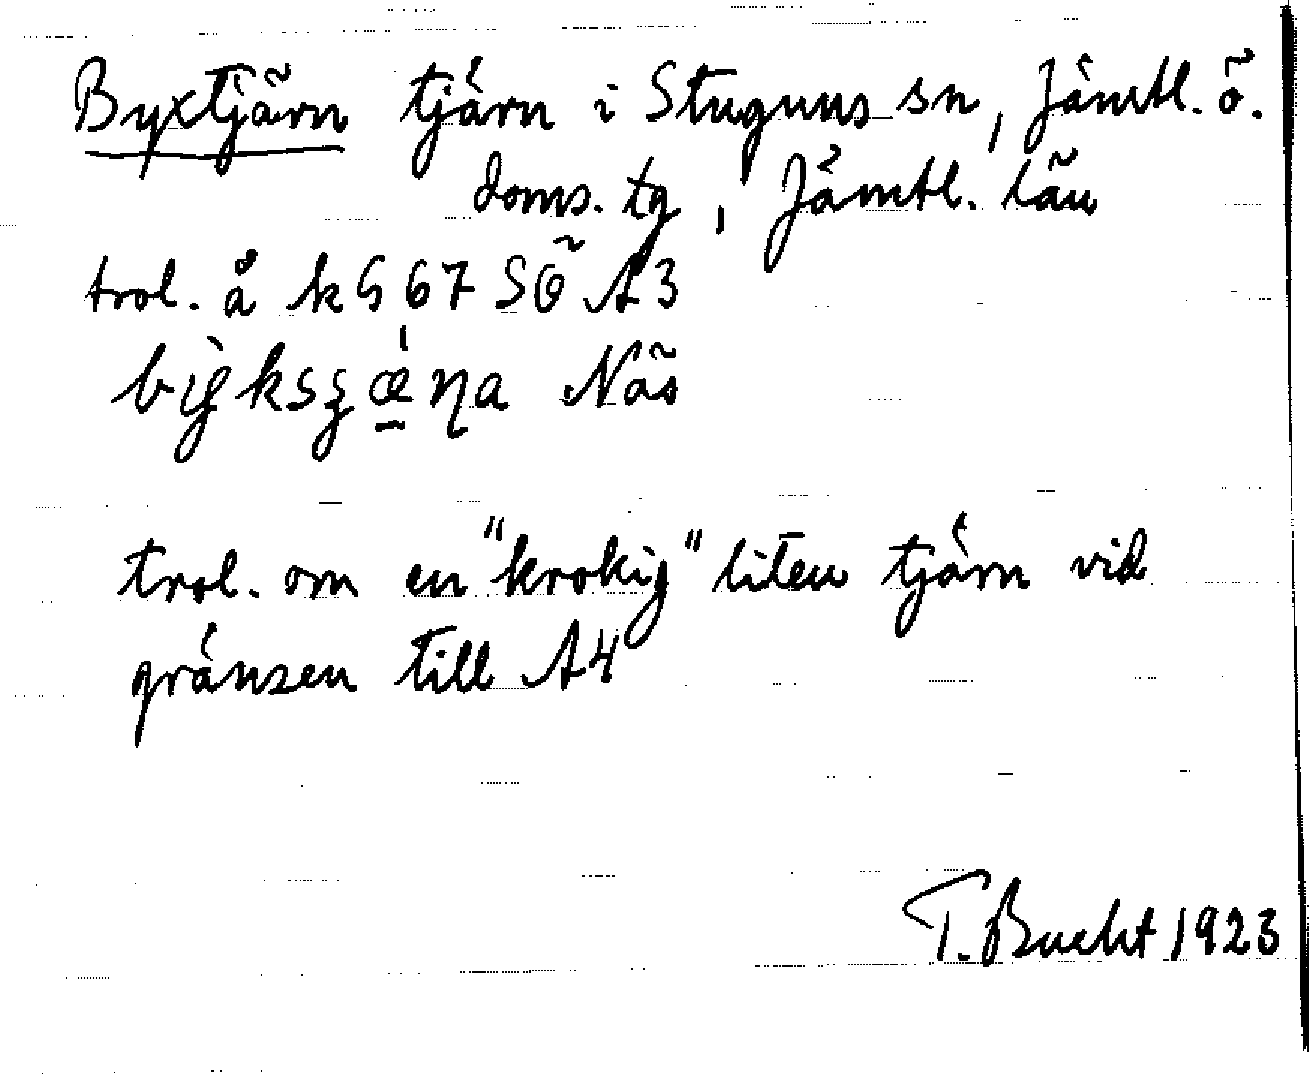 Byxtjärn tjärn i Stuguns sn, Jämtl. ö.
doms. tg, Jämtl. län
trol. å k G 67 SÖ A3
Näs
trol. om en "krokig" liten tjärn vid
gränsen till A4
T. Bucht 1923